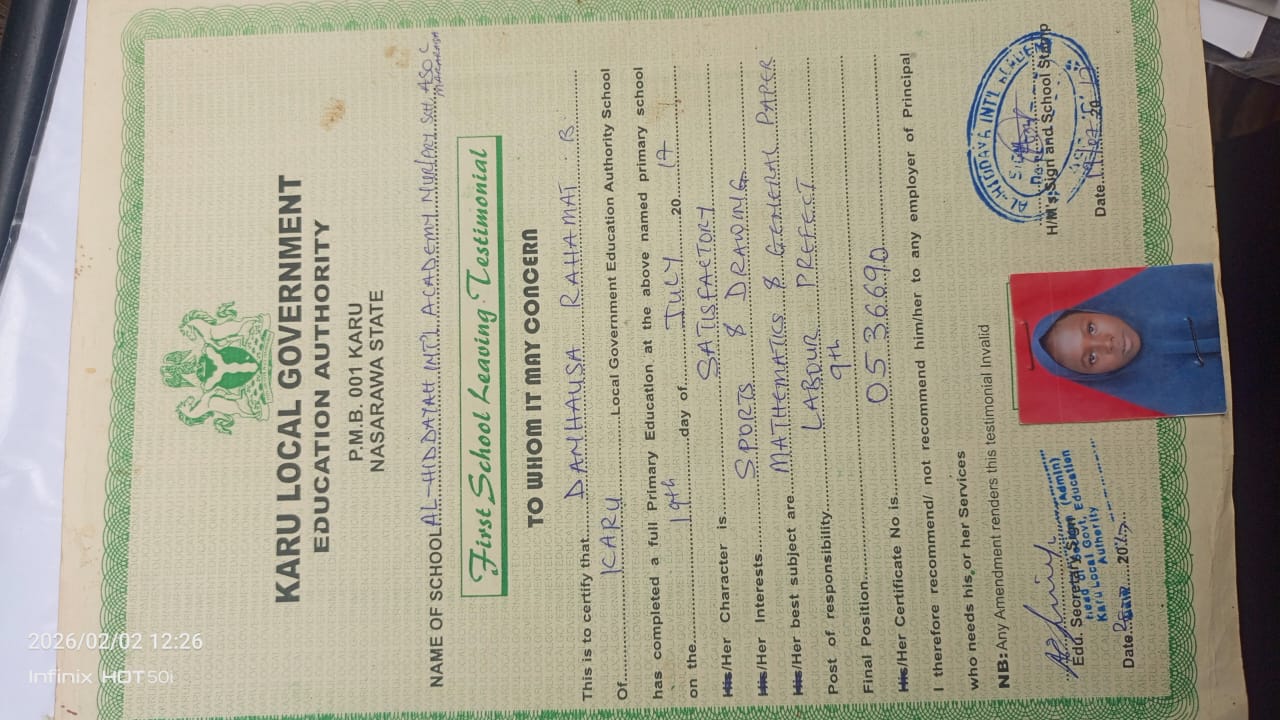 KARU LOCAL GOVERNMENT
EDUCATION AUTHORITY
P.M.B. 001 KARU
NASARAWA STATE
NAME OF SCHOOL AL-HIDDAYAH INT'L ACADEMY NUR/PRY Sch. ASO C
MARARABA
First School Leaving Testimonial
TO WHOM IT MAY CONCERN
This is to certify that DANHAUSA RAHAMAT . B.
Of KARU Local Government Education Authority School
has completed a full Primary Education at the above named primary school
on the 19th day of JULY 20 17
His/Her Character is SATISFACTORY
His/Her Interests SPORTS & DRAWING
His/Her best subject are MATHEMATICS & GENERAL PAPER
Post of responsibility LABOUR PREFECT
Final Position 9th
His/Her Certificate No is 0536690
I therefore recommend/ not recommend him/her to any employer of Principal
who needs his,or her Services
NB: Any Amendment renders this testimonial Invalid
Edu. Secretary Sign (Admin)
Karu Local Govt. Education
Authority
Date 20
AL-HIDDAYA INT'L
H/M's Sign and School Stamp
Date 20
2026/02/02 12:26
Infinix HOT 50i